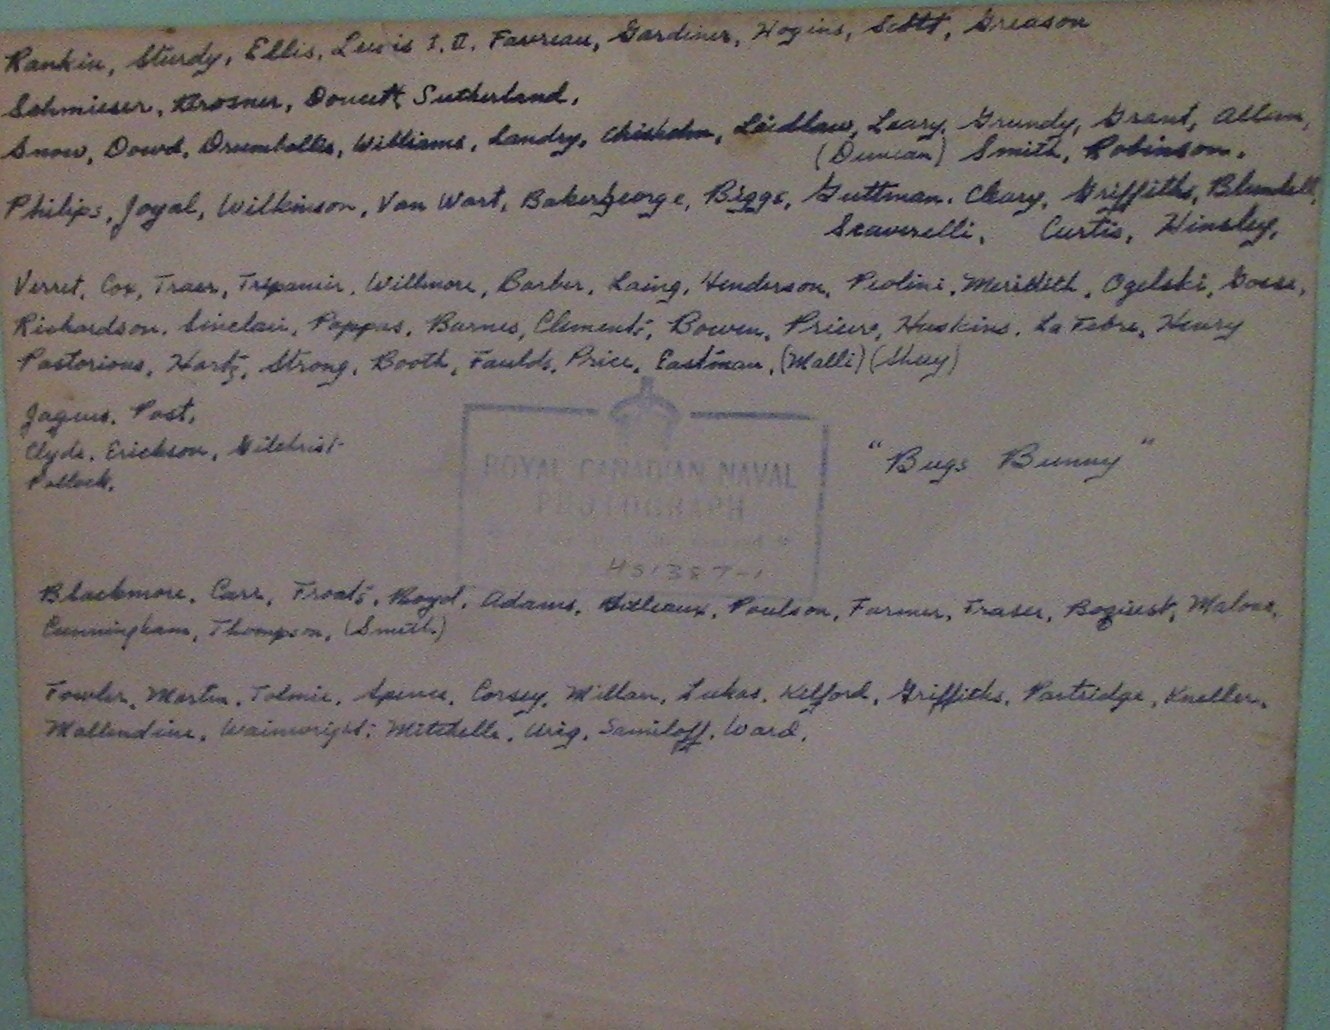 Rankin, Sturdy, Ellis, Lewis I, II, Favreau, Gardiner, Hogins, Scott, Greason
Schmieser, Brosner, Doucett, Sutherland,
Snow, Dowd, Drumbolles, Williams, Landry, Chisholm, Laidlaw, Leary, Grundy, Grant, Allam,
(Duncan) Smith, Robinson,
Philips, Joyal, Wilkinson, Van Wart, Baker, George, Biggs, Guttman, Cleary, Griffiths, Blundell,
Scaverelli, Curtis, Hinsley,
Verret, Cox, Traer, Trepanier, Willmore, Barber, Laing, Henderson, Piolini, Meridith, Ogelski, Gosse,
Richardson, Sinclair, Pappas, Barnes, Clements, Bowen, Prieur, Haskins, La Febre, Henry
Pastorious, Hartz, Strong, Booth, Faulds, Price, Eastman, (Malli) (Shuy)
Jaques, Post,
Clyde, Erickson, Gilchrist
Pollock,
"Bugs Bunny"
ROYAL CANADIAN NAVAL
PHOTOGRAPH
HS1387-1
Blackmore, Carr, Froats, Boyd, Adams, Poulson, Farmer, Fraser, Boquist, Malone,
Cunningham, Thompson, (Smith)
Fowler, Martin, Tolmie, Spence, Corsey, Millan, Lukas, Kelford, Griffiths, Partridge, Kneller,
Mallendine, Wainwright, Mitchelle, Urig, Samiloff, Ward,